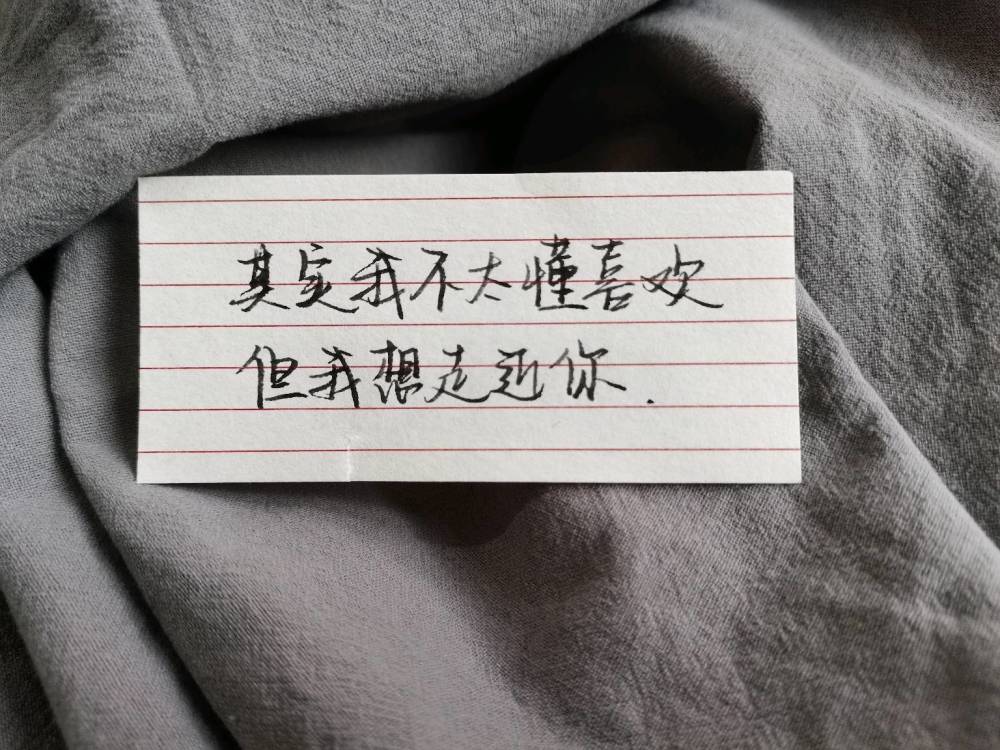 其实我不太懂喜欢
但我想走近你.